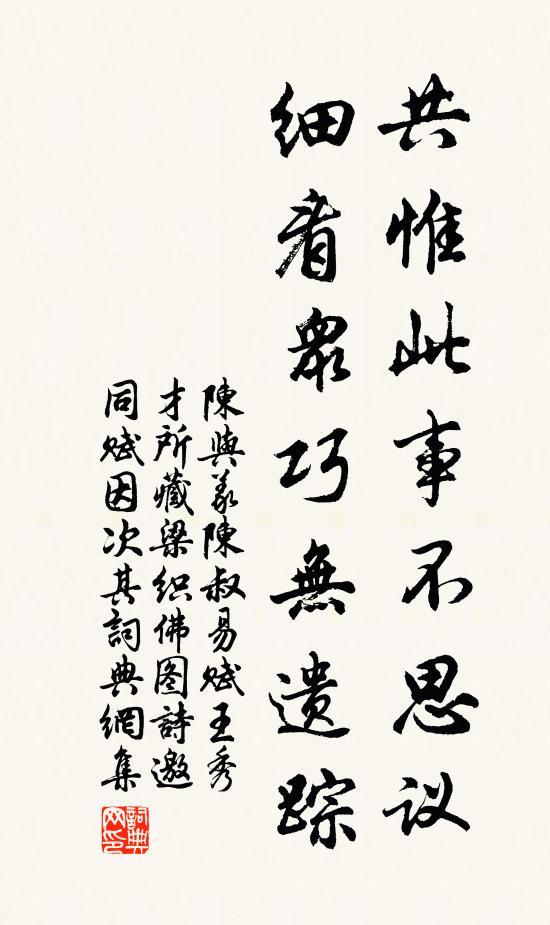 共惟此事不思议
细看衆巧無遗踪
陳與義陳叔易赋王秀
才所藏梁织佛图詩邀
同赋因次其詞典網集
詞典网印